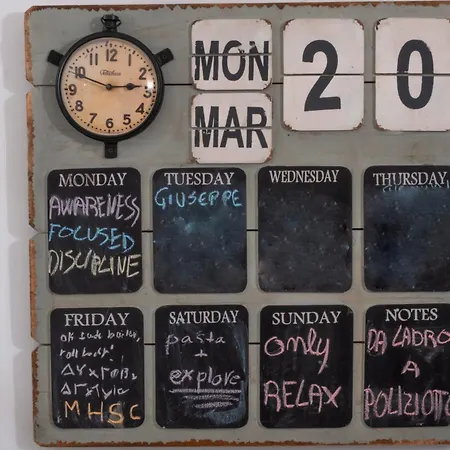 12 1 2 3 4 5 6 7 8 9 10 11
MON
MAR
2 0
MONDAY
AWARENESS
FOCUSED
DISCIPLINE
TUESDAY
GIUSEPPE
WEDNESDAY
THURSDAY
FRIDAY
MHSC
SATURDAY
pasta
+
explore
SUNDAY
only
RELAX
NOTES
DA LADRO
A
POLIZIOTTO